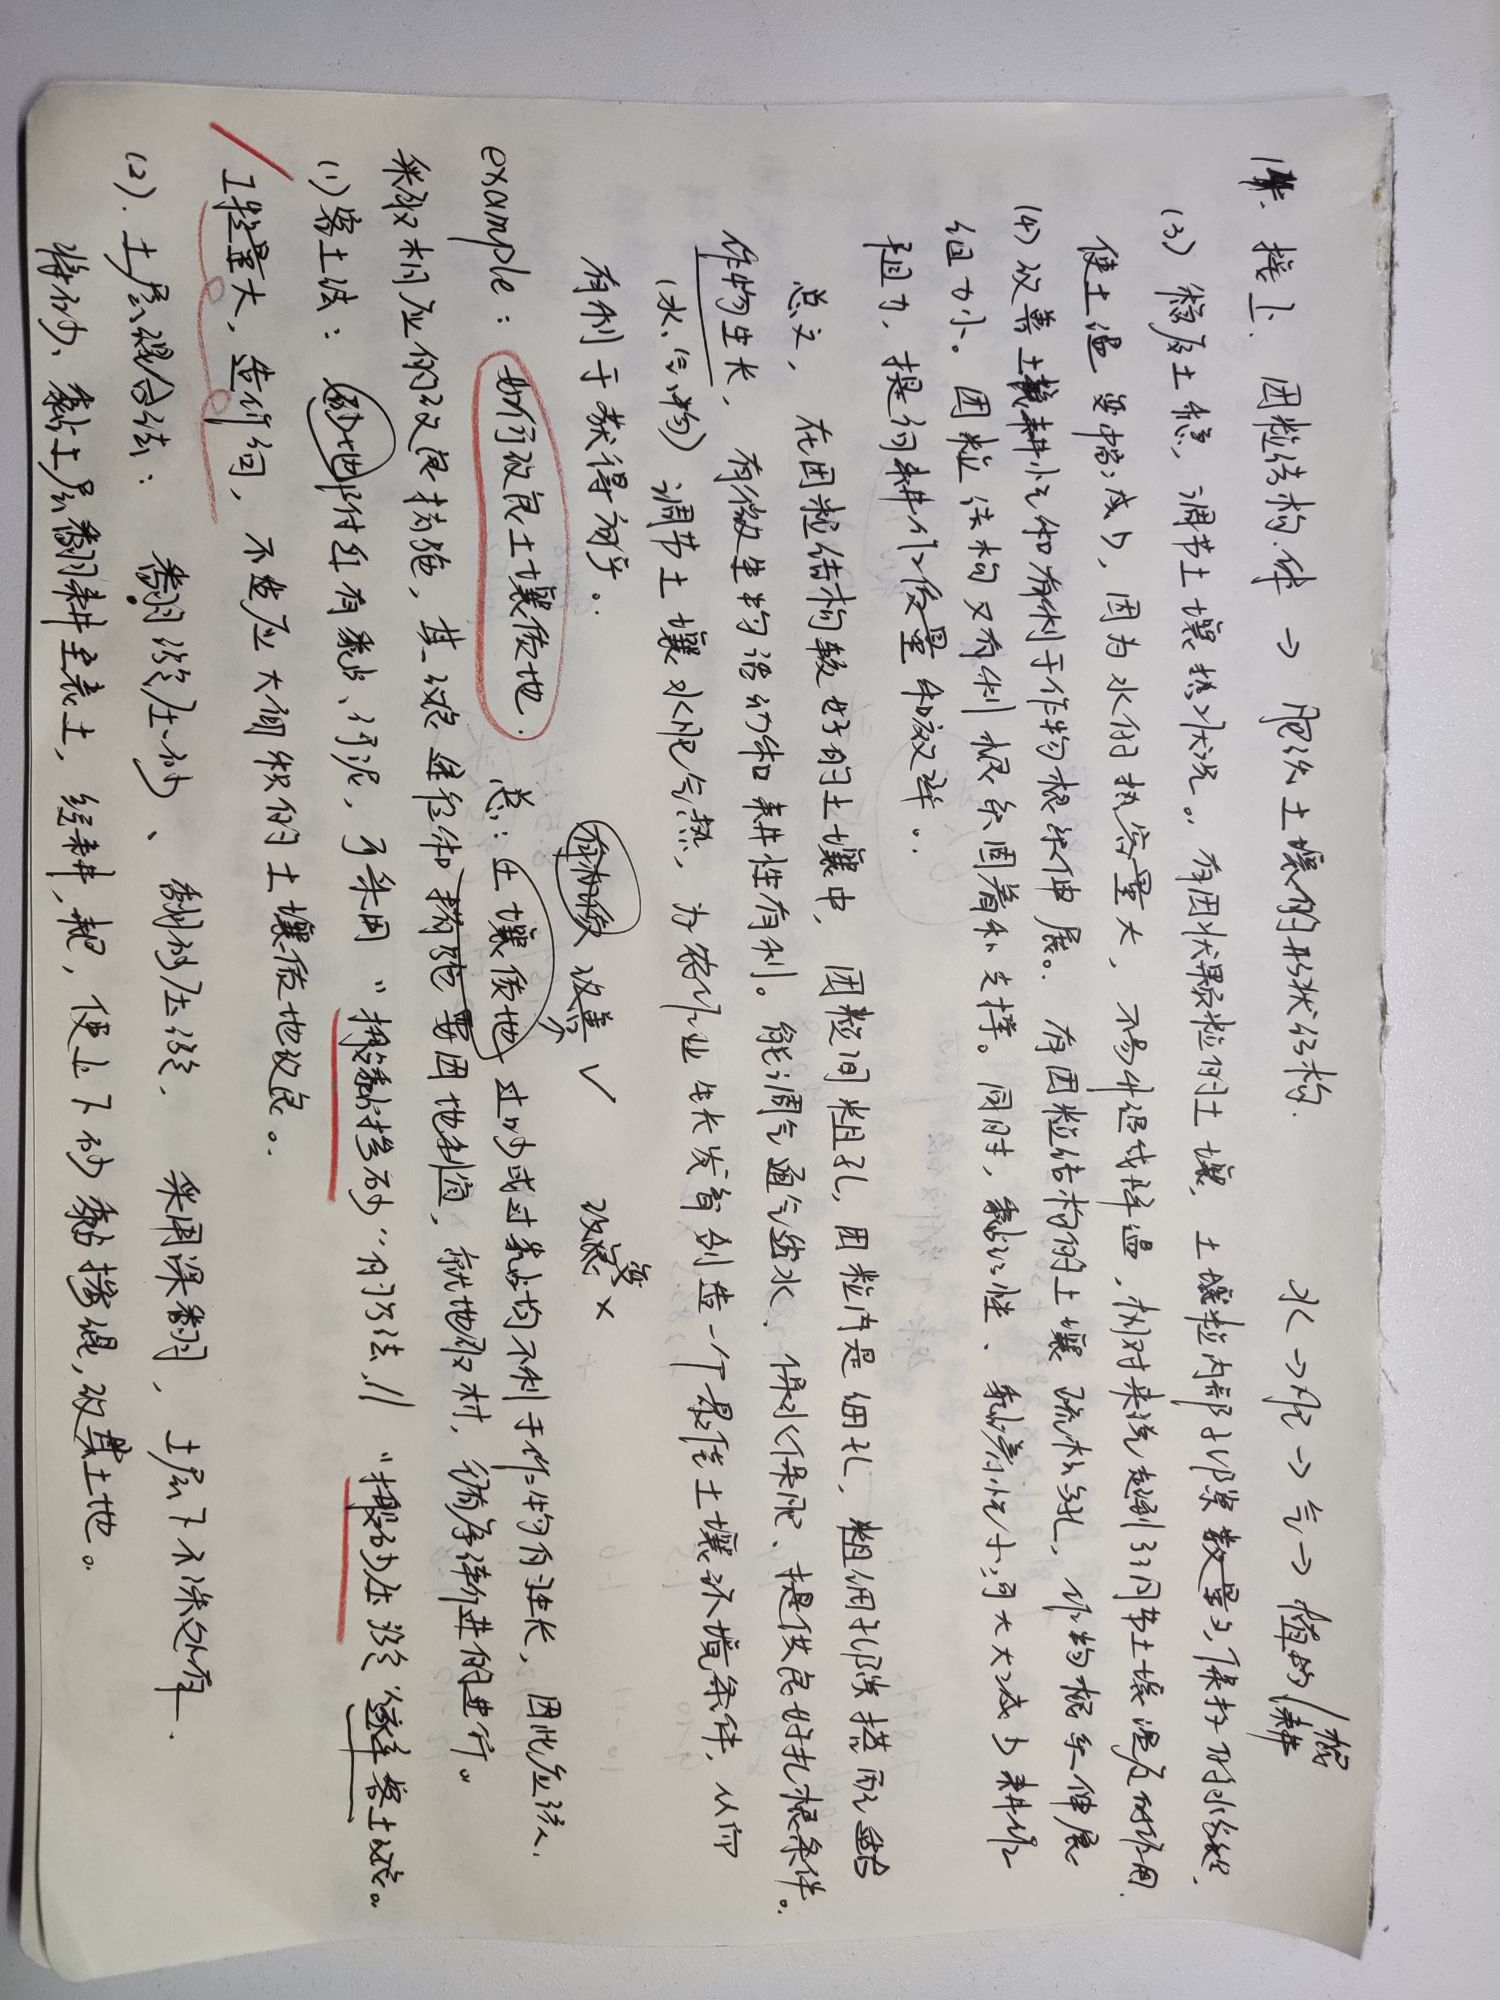 接上. 团粒结构体 → 肥沃土壤的形状结构. 水→肥→气→植物 根 耕
(3) 稳定土稳, 调节土壤热状况。有团状颗粒的土壤, 土壤粒内部孔隙数量多, 保持的水分较
使土温变幅减少, 因为水的热容量大, 不易升温或降温, 相对来说起到调节土壤温度的作用.
(4) 改善土壤耕性和有利于作物根系伸展。有团粒结构的土壤疏松多孔, 作物根系伸展
阻力小。团粒结构又有利根系固着和支撑。同时, 黏结性、黏着性小, 可大大减少耕作
阻力, 提高耕作质量和效率。
总之, 在团粒结构较好的土壤中, 团粒间粗孔, 团粒内是细孔, 粗细孔隙搭配结合
作物生长, 有微生物活动和耕性有利。能调气通气透水、保水保肥、提供良好扎根条件。
(水、气、物) 调节土壤水肥气热, 为农作业生长发育创造一个最佳土壤环境条件, 从而
有利于获得高产。
结构改善 ✓ 改良 ×
example: 如何改良土壤质地. 总: 土壤质地过砂或过黏均不利于作物的生长, 因此应该
采取相应的改良措施, 其改良途径和措施要因地制宜, 就地取材, 循序渐进的进行。
(1) 客土法: 砂地附近有黏土、河泥, 可采用 "搬黏掺砂" 的方法, // "搬砂压淤" 逐年客土改良。
工程量大, 造价高, 不适应大面积的土壤质地改良。
(2). 土层混合法: 翻淤压砂、翻砂压淤. 采用深翻, 土层下不深处有.
将砂、黏土层翻耕至表土, 经耕, 耙, 使上下砂黏掺混, 改其土地。